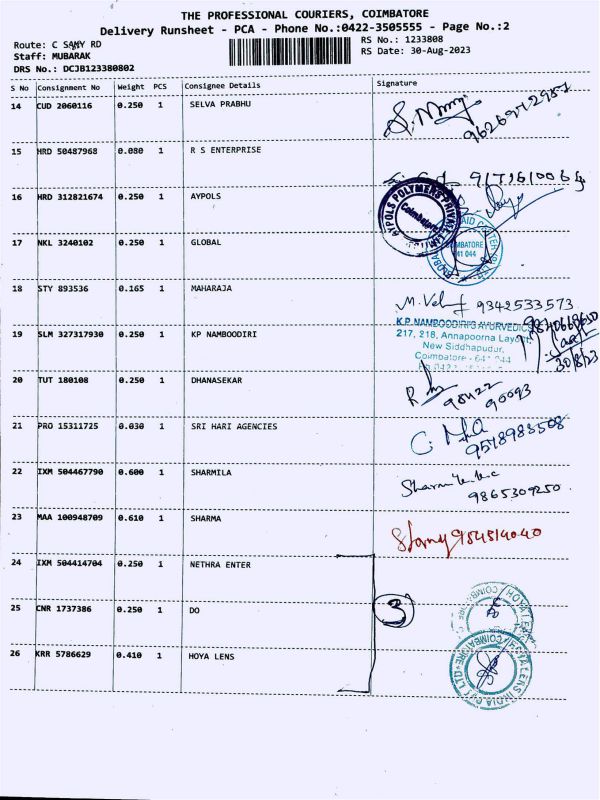 THE PROFESSIONAL COURIERS, COIMBATORE
Delivery Runsheet - PCA - Phone No.:0422-3505555 - Page No.:2
Route: C SAMY RD
RS No.: 1233808
Staff: MUBARAK
RS Date: 30-Aug-2023
DRS No.: DCJB123380802
S No Consignment No Weight PCS Consignee Details Signature
14 CUD 2060116 0.250 1 SELVA PRABHU
15 HRD 50487968 0.080 1 R S ENTERPRISE
16 HRD 312821674 0.250 1 AYPOLS
AYPOLS POLYMERS PRIVATE LIMITED
Coimbatore
17 NKL 3240102 0.250 1 GLOBAL
COIMBATORE
641 044
18 STY 893536 0.165 1 MAHARAJA
9342533573
19 SLM 327317930 0.250 1 KP NAMBOODIRI
K.P. NAMBOODIRI'S AYURVEDICS
217, 218, Annapoorna Layout,
New Siddhapudur,
Coimbatore - 641 044
30/8/23
20 TUT 180108 0.250 1 DHANASEKAR
98422 90093
21 PRO 15311725 0.030 1 SRI HARI AGENCIES
9578983508
22 IXM 504467790 0.600 1 SHARMILA
9865309250
23 MAA 100948709 0.610 1 SHARMA
24 IXM 504414704 0.250 1 NETHRA ENTER
25 CNR 1737386 0.250 1 DO
3
26 KRR 5786629 0.410 1 HOYA LENS
HOYA LENS INDIA PVT LTD
COIMBATORE